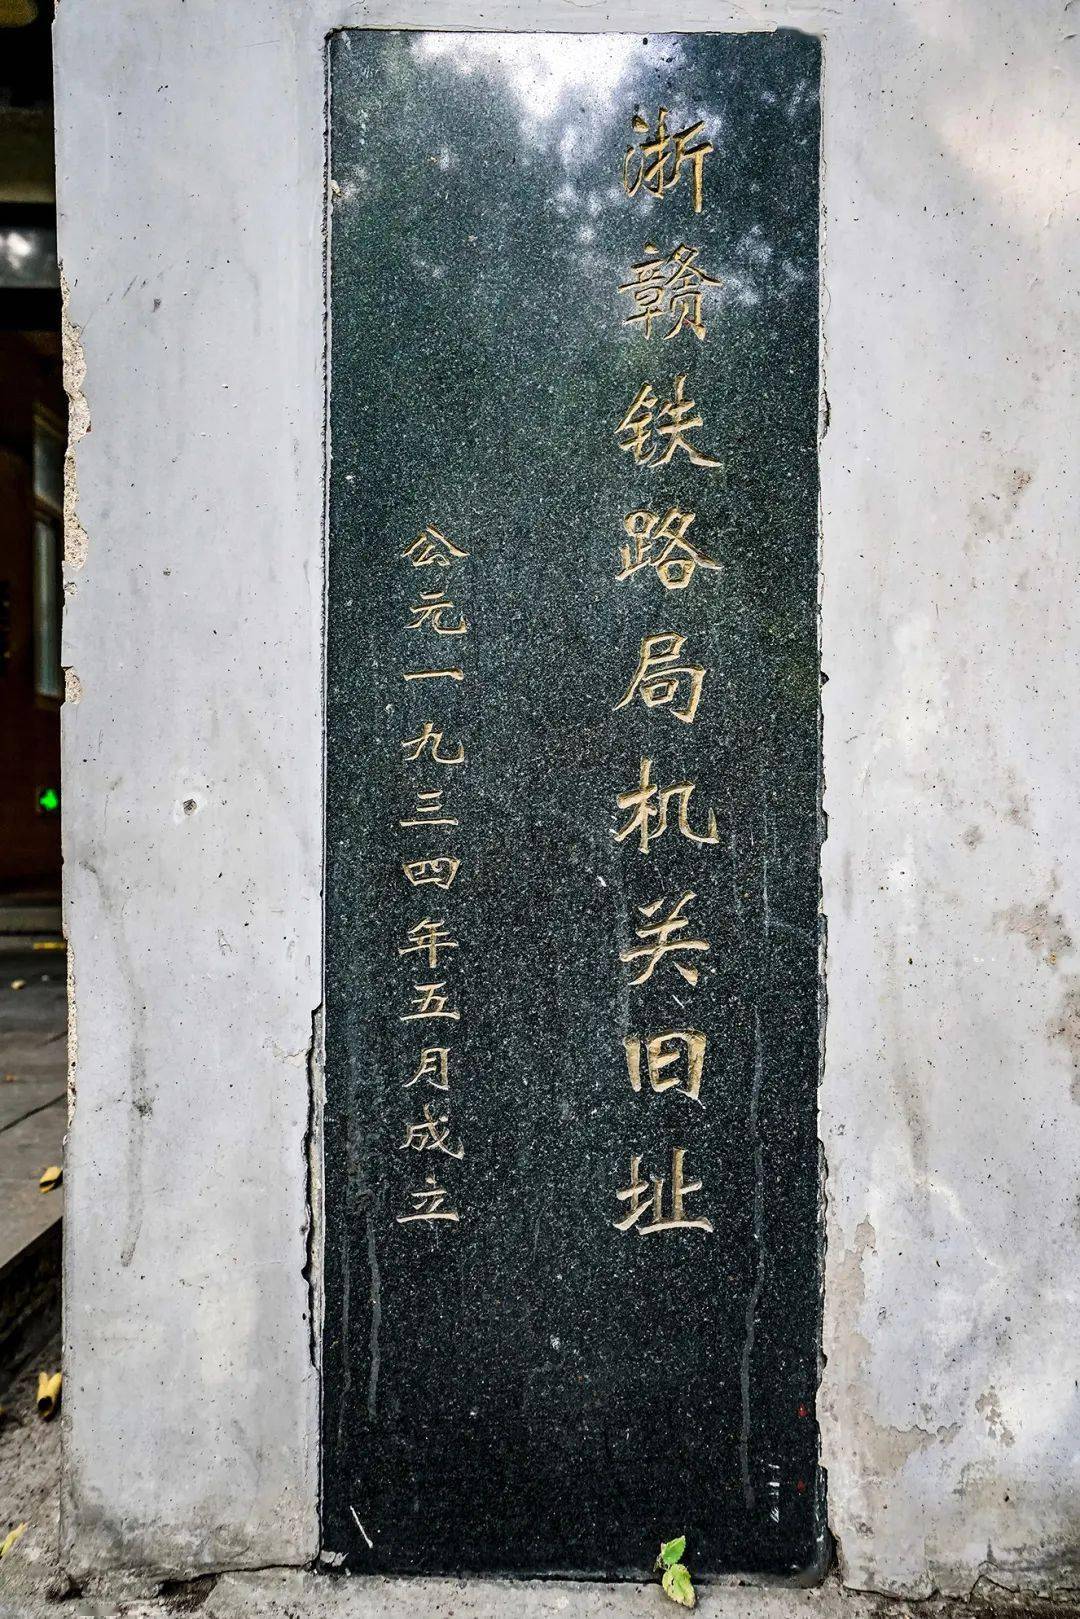 浙赣铁路局机关旧址
公元一九三四年五月成立